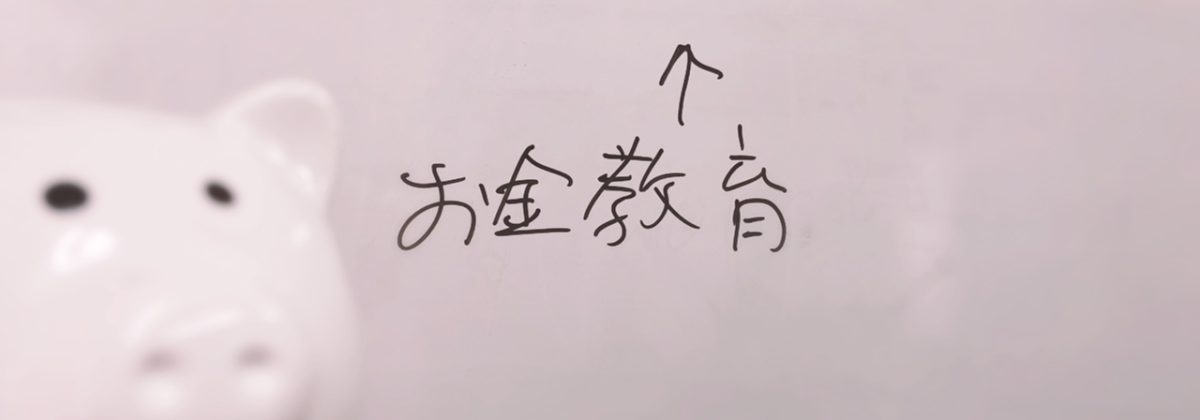 ↑
お金教育